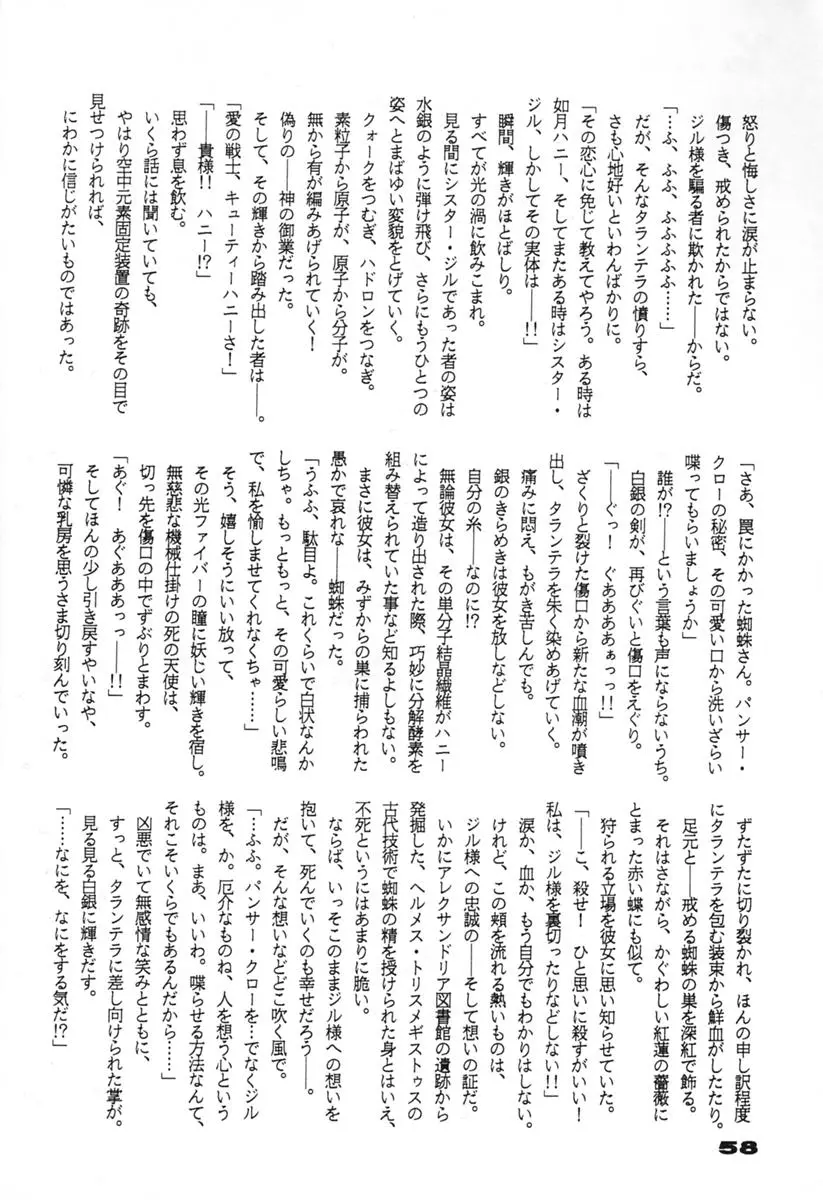 怒りと悔しさに涙が止まらない。
傷つき、戒められたからではない。
ジル様を騙る者に欺かれた――からだ。
「…ふ、ふふ、ふふふふふ……」
だが、そんなタランテラの憤りすら、
さも心地好いといわんばかりに。
「その恋心に免じて教えてやろう。ある時は
如月ハニー、そしてまたある時はシスター・
ジル、しかしてその実体は――!!」
瞬間、輝きがほとばしり。
すべてが光の渦に飲みこまれ。
見る間にシスター・ジルであった者の姿は
水銀のように弾け飛び、さらにもうひとつの
姿へとまばゆい変貌をとげていく。
クォークをつむぎ、ハドロンをつなぎ。
素粒子から原子が、原子から分子が。
無から有が編みあげられていく!
偽りの――神の御業だった。
そして、その輝きから踏み出した者は――。
「愛の戦士、キューティーハニーさ!」
「――貴様!! ハニー!?」
思わず息を飲む。
いくら話には聞いていても、
やはり空中元素固定装置の奇跡をその目で
見せつけられれば、
にわかに信じがたいものではあった。
「さあ、罠にかかった蜘蛛さん。パンサー・
クローの秘密、その可愛い口から洗いざらい
喋ってもらいましょうか」
誰が!?――という言葉も声にならないうち。
白銀の剣が、再びぐいと傷口をえぐり。
「――ぐっ! ぐああああぁっっ!!」
ざくりと裂けた傷口から新たな血潮が噴き
出し、タランテラを朱く染めあげていく。
痛みに悶え、もがき苦しんでも。
銀のきらめきは彼女を放しなどしない。
自分の糸――なのに!?
無論彼女は、その単分子結晶繊維がハニー
によって造り出された際、巧妙に分解酵素を
組み替えられていた事など知るよしもない。
まさに彼女は、みずからの巣に捕らわれた
愚かで哀れな――蜘蛛だった。
「うふふ、駄目よ。これくらいで白状なんか
しちゃ。もっともっと、その可愛らしい悲鳴
で、私を愉しませてくれなくちゃ……」
そう、嬉しそうにいい放って、
その光ファイバーの瞳に妖しい輝きを宿し。
無慈悲な機械仕掛けの死の天使は、
切っ先を傷口の中でずぶりとまわす。
「あぐ! あぐあああっっ――!!」
そしてほんの少し引き戻すやいなや、
可憐な乳房を思うさま切り刻んでいった。
ずたずたに切り裂かれ、ほんの申し訳程度
にタランテラを包む装束から鮮血がしたたり。
足元と――戒める蜘蛛の巣を深紅で飾る。
それはさながら、かぐわしい紅蓮の薔薇に
とまった赤い蝶にも似て。
狩られる立場を彼女に思い知らせていた。
「――こ、殺せ! ひと思いに殺すがいい!
私は、ジル様を裏切ったりなどしない!!」
涙か、血か、もう自分でもわかりはしない。
けれど、この頬を流れる熱いものは、
ジル様への忠誠の――そして想いの証だ。
いかにアレクサンドリア図書館の遺跡から
発掘した、ヘルメス・トリスメギストゥスの
古代技術で蜘蛛の精を授けられた身とはいえ、
不死というにはあまりに脆い。
ならば、いっそこのままジル様への想いを
抱いて、死んでいくのも幸せだろう――。
だが、そんな想いなどどこ吹く風で。
「…ふふ。パンサー・クローを…でなくジル
様を、か。厄介なものね、人を想う心という
ものは。まあ、いいわ。喋らせる方法なんて、
それこそいくらでもあるんだから……」
凶悪でいて無感情な笑みとともに、
すっと、タランテラに差し向けられた掌が。
見る見る白銀に輝きだす。
「……なにを、なにをする気だ!?」
58